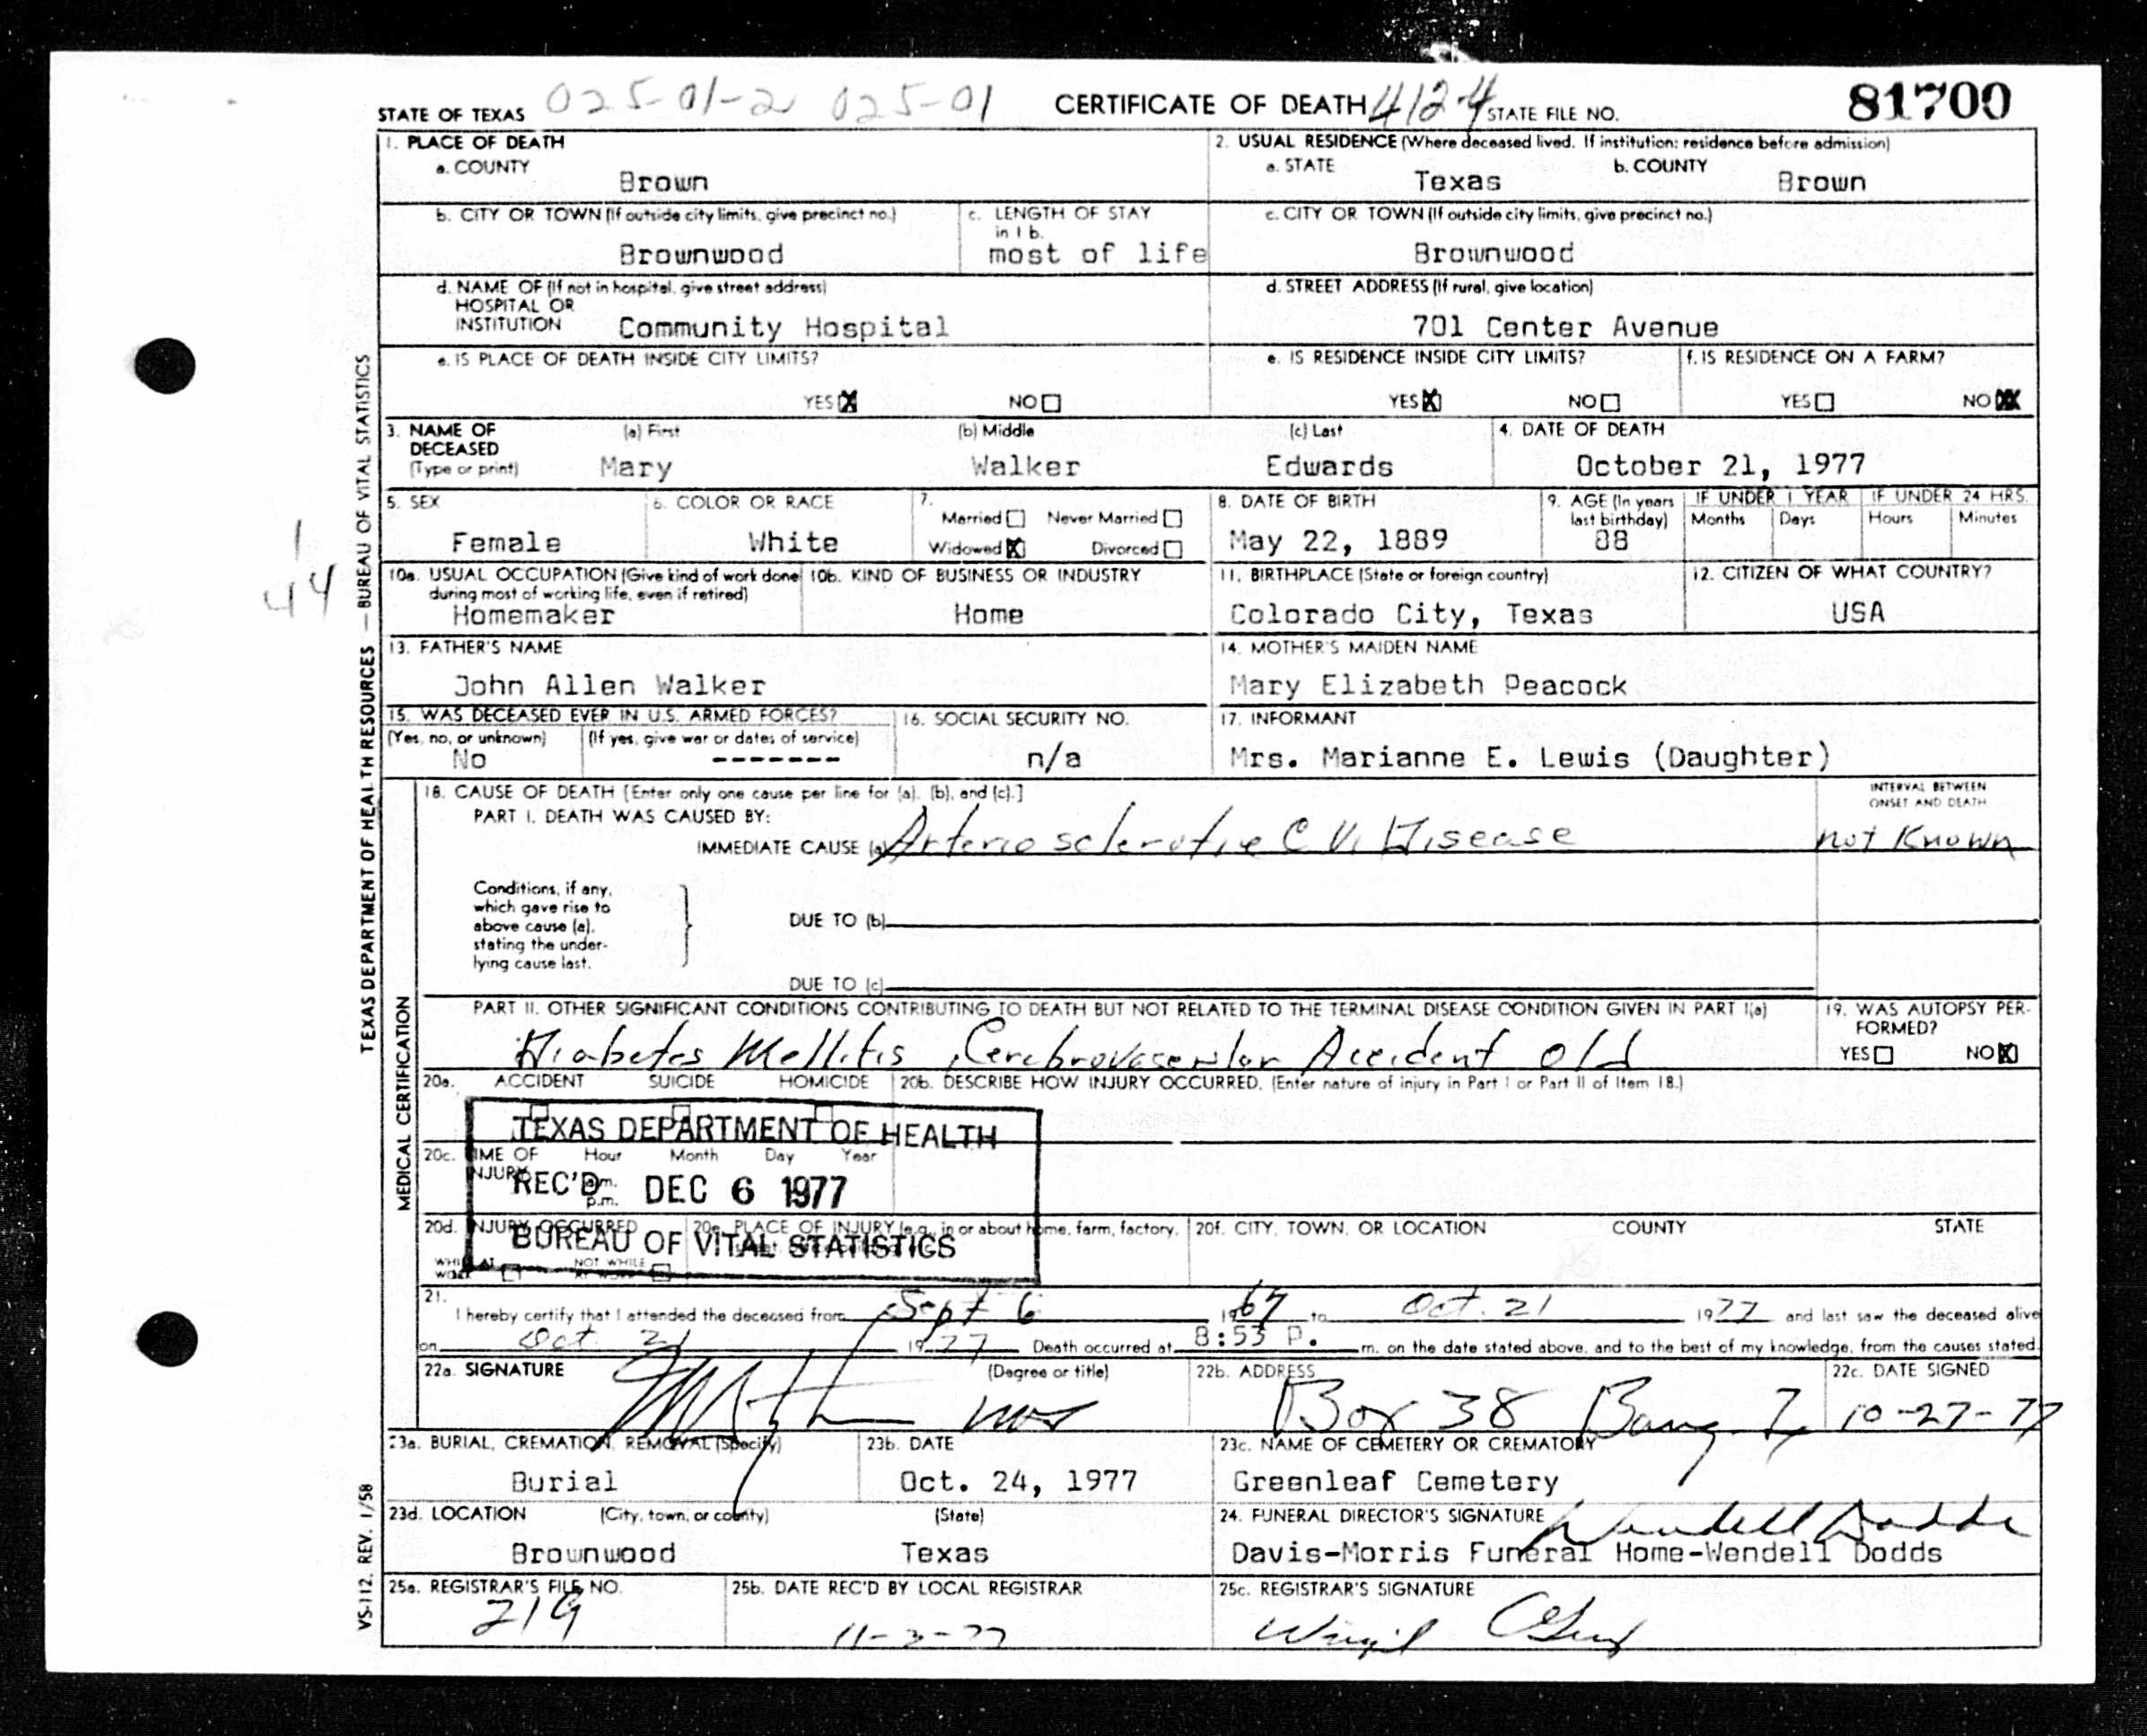 STATE OF TEXAS 025-01-2 025-01 CERTIFICATE OF DEATH 412-4 STATE FILE NO. 81700
1. PLACE OF DEATH
a. COUNTY Brown
2. USUAL RESIDENCE (Where deceased lived. If institution: residence before admission)
a. STATE Texas b. COUNTY Brown
b. CITY OR TOWN (If outside city limits, give precinct no.) Brownwood
c. LENGTH OF STAY in 1 b. most of life
c. CITY OR TOWN (If outside city limits, give precinct no.) Brownwood
d. NAME OF (If not in hospital, give street address) HOSPITAL OR INSTITUTION Community Hospital
d. STREET ADDRESS (If rural, give location) 701 Center Avenue
e. IS PLACE OF DEATH INSIDE CITY LIMITS? YES X NO
e. IS RESIDENCE INSIDE CITY LIMITS? YES X NO
f. IS RESIDENCE ON A FARM? YES NO XX
3. NAME OF DECEASED (Type or print) (a) First Mary (b) Middle Walker (c) Last Edwards
4. DATE OF DEATH October 21, 1977
5. SEX Female
6. COLOR OR RACE White
7. Married Never Married Widowed X Divorced
8. DATE OF BIRTH May 22, 1889
9. AGE (In years last birthday) 88 IF UNDER 1 YEAR Months Days IF UNDER 24 HRS. Hours Minutes
10a. USUAL OCCUPATION (Give kind of work done during most of working life, even if retired) Homemaker
10b. KIND OF BUSINESS OR INDUSTRY Home
11. BIRTHPLACE (State or foreign country) Colorado City, Texas
12. CITIZEN OF WHAT COUNTRY? USA
13. FATHER'S NAME John Allen Walker
14. MOTHER'S MAIDEN NAME Mary Elizabeth Peacock
15. WAS DECEASED EVER IN U.S. ARMED FORCES? (Yes, no, or unknown) No (If yes, give war or dates of service) -------
16. SOCIAL SECURITY NO. n/a
17. INFORMANT Mrs. Marianne E. Lewis (Daughter)
18. CAUSE OF DEATH [Enter only one cause per line for (a), (b), and (c).]
INTERVAL BETWEEN ONSET AND DEATH
PART I. DEATH WAS CAUSED BY:
IMMEDIATE CAUSE (a) Arteriosclerotic C.V. Disease not Known
Conditions, if any, which gave rise to above cause (a), stating the underlying cause last.
DUE TO (b)
DUE TO (c)
PART II. OTHER SIGNIFICANT CONDITIONS CONTRIBUTING TO DEATH BUT NOT RELATED TO THE TERMINAL DISEASE CONDITION GIVEN IN PART I(a)
Diabetes Mellitis, Cerebrovascular Accident old
19. WAS AUTOPSY PERFORMED? YES NO X
20a. ACCIDENT SUICIDE HOMICIDE
20b. DESCRIBE HOW INJURY OCCURRED. (Enter nature of injury in Part I or Part II of Item 18.)
TEXAS DEPARTMENT OF HEALTH
REC'D DEC 6 1977
BUREAU OF VITAL STATISTICS
20c. TIME OF INJURY Hour a.m. p.m. Month Day Year
20d. INJURY OCCURRED WHILE AT WORK NOT WHILE AT WORK
20e. PLACE OF INJURY (e.g., in or about home, farm, factory,
20f. CITY, TOWN, OR LOCATION COUNTY STATE
21. I hereby certify that I attended the deceased from Sept 6 1967 to Oct. 21 1977 and last saw the deceased alive
on Oct. 21 1977 Death occurred at 8:53 P. m. on the date stated above, and to the best of my knowledge, from the causes stated.
22a. SIGNATURE (Degree or title)
22b. ADDRESS Box 38
22c. DATE SIGNED 10-27-77
23a. BURIAL, CREMATION, REMOVAL (Specify) Burial
23b. DATE Oct. 24, 1977
23c. NAME OF CEMETERY OR CREMATORY Greenleaf Cemetery
23d. LOCATION (City, town, or county) Brownwood (State) Texas
24. FUNERAL DIRECTOR'S SIGNATURE Wendell Dodds
Davis-Morris Funeral Home-Wendell Dodds
25a. REGISTRAR'S FILE NO. 219
25b. DATE REC'D BY LOCAL REGISTRAR 11-2-77
25c. REGISTRAR'S SIGNATURE
TEXAS DEPARTMENT OF HEALTH RESOURCES — BUREAU OF VITAL STATISTICS
MEDICAL CERTIFICATION
VS-112. REV. 1/58
1
44